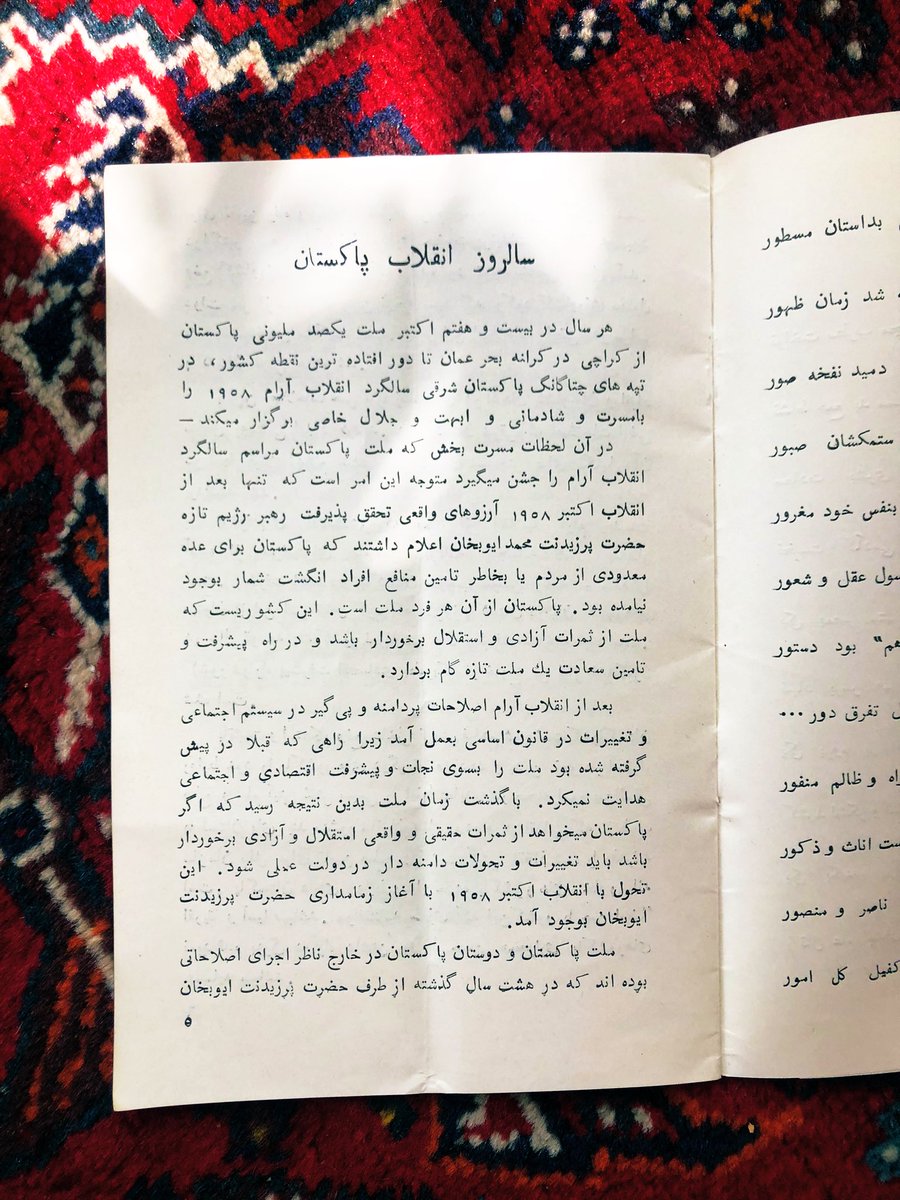 سالروز انقلاب پاکستان
هر سال در بیست و هفتم اکتبر ملت یکصد ملیونی پاکستان
از کراچی در کرانه بحر عمان تا دور افتاده ترین نقطه کشور، در
تپه های چتاگانگ پاکستان شرقی سالگرد انقلاب آرام ۱۹۵۸ را
بامسرت و شادمانی و ابهت و جلال خاصی برگزار میکند —
در آن لحظات مسرت بخش که ملت پاکستان مراسم سالگرد
انقلاب آرام را جشن میگیرد متوجه این امر است که تنها بعد از
انقلاب اکتبر ۱۹۵۸ آرزوهای واقعی تحقق پذیرفت رهبر رژیم تازه
حضرت پرزیدنت محمد ایوبخان اعلام داشتند که پاکستان برای عده
معدودی از مردم یا بخاطر تامین منافع افراد انگشت شمار بوجود
نیامده بود. پاکستان از آن هر فرد ملت است. این کشوریست که
ملت از ثمرات آزادی و استقلال برخوردار باشد و در راه پیشرفت و
تامین سعادت یك ملت تازه گام بردارد.
بعد از انقلاب آرام اصلاحات پردامنه و پی گیر در سیستم اجتماعی
و تغییرات در قانون اساسی بعمل آمد زیرا راهی که قبلا در پیش
گرفته شده بود ملت را بسوی نجات و پیشرفت اقتصادی و اجتماعی
هدایت نمیکرد. باگذشت زمان ملت بدین نتیجه رسید که اگر
پاکستان میخواهد از ثمرات حقیقی و واقعی استقلال و آزادی برخوردار
باشد باید تغییرات و تحولات دامنه دار در دولت عملی شود. این
تحول با انقلاب اکتبر ۱۹۵۸ با آغاز زمامداری حضرت پرزیدنت
ایوبخان بوجود آمد.
ملت پاکستان و دوستان پاکستان در خارج ناظر اجرای اصلاحاتی
بوده اند که در هشت سال گذشته از طرف حضرت پرزیدنت ایوبخان
۵
بداستان مسطور
شد زمان ظهور
دمید نفخه صور
ستمکشان صبور
بنفس خود مغرور
سول عقل و شعور
هم" بود دستور
تفرق دور...
راه و ظالم منفور
ست اناث و ذکور
ناصر و منصور
کفیل کل امور